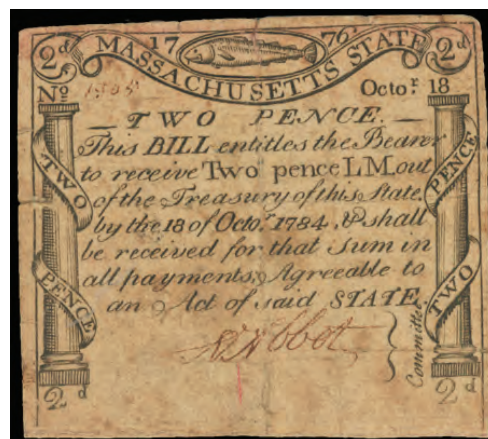 2d 17 76 2d
MASSACHUSETTS STATE
No Octor. 18
TWO PENCE.
This BILL entitles the Bearer
to receive Two pence LM. out
of the Treasury of this State.
by the 18 of Octor. 1784, & shall
be received for that Sum in
all payments, Agreeable to
an Act of said STATE.
TWO PENCE
PENCE TWO
Committee.
2d 2d